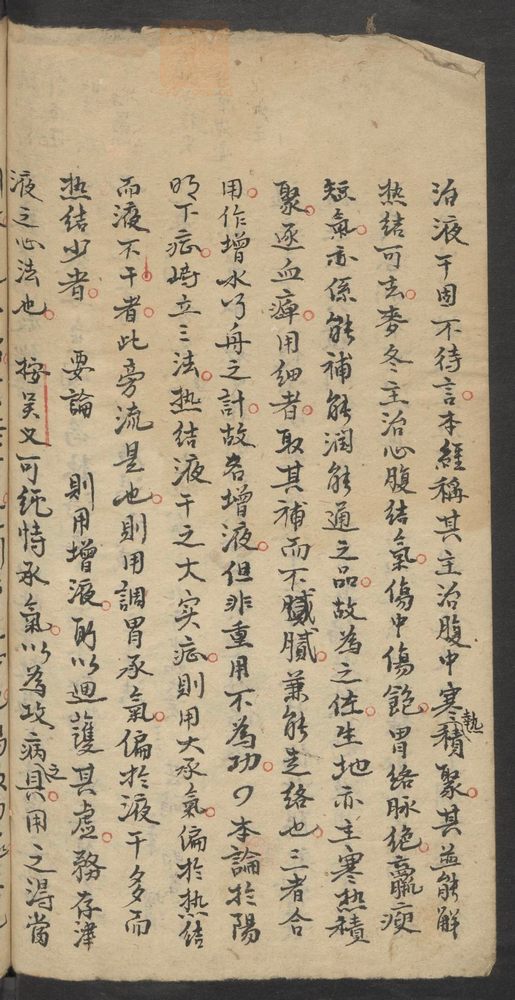 治液干固不待言本經稱其主治腹中寒熱積聚其並能解
热結可玄麥冬主治心腹結氣傷中傷飽胃络脉绝羸瘦
短氣亦係能補能潤能通之品故為之佐生地亦主寒热積
聚逐血痺用细者取其補而不膩兼能走络也三者合
用作增水行舟之計故名增液但非重用不為功本論於陽
明下症峙立三法热結液干之大实症則用大承氣偏於热結
而液不干者此旁流是也則用調胃承氣偏於液干多而
热結少者要論則用增液所以迴護其虚務存津
液之心法也按吴又可纯恃承氣以為攻病之具用之得當